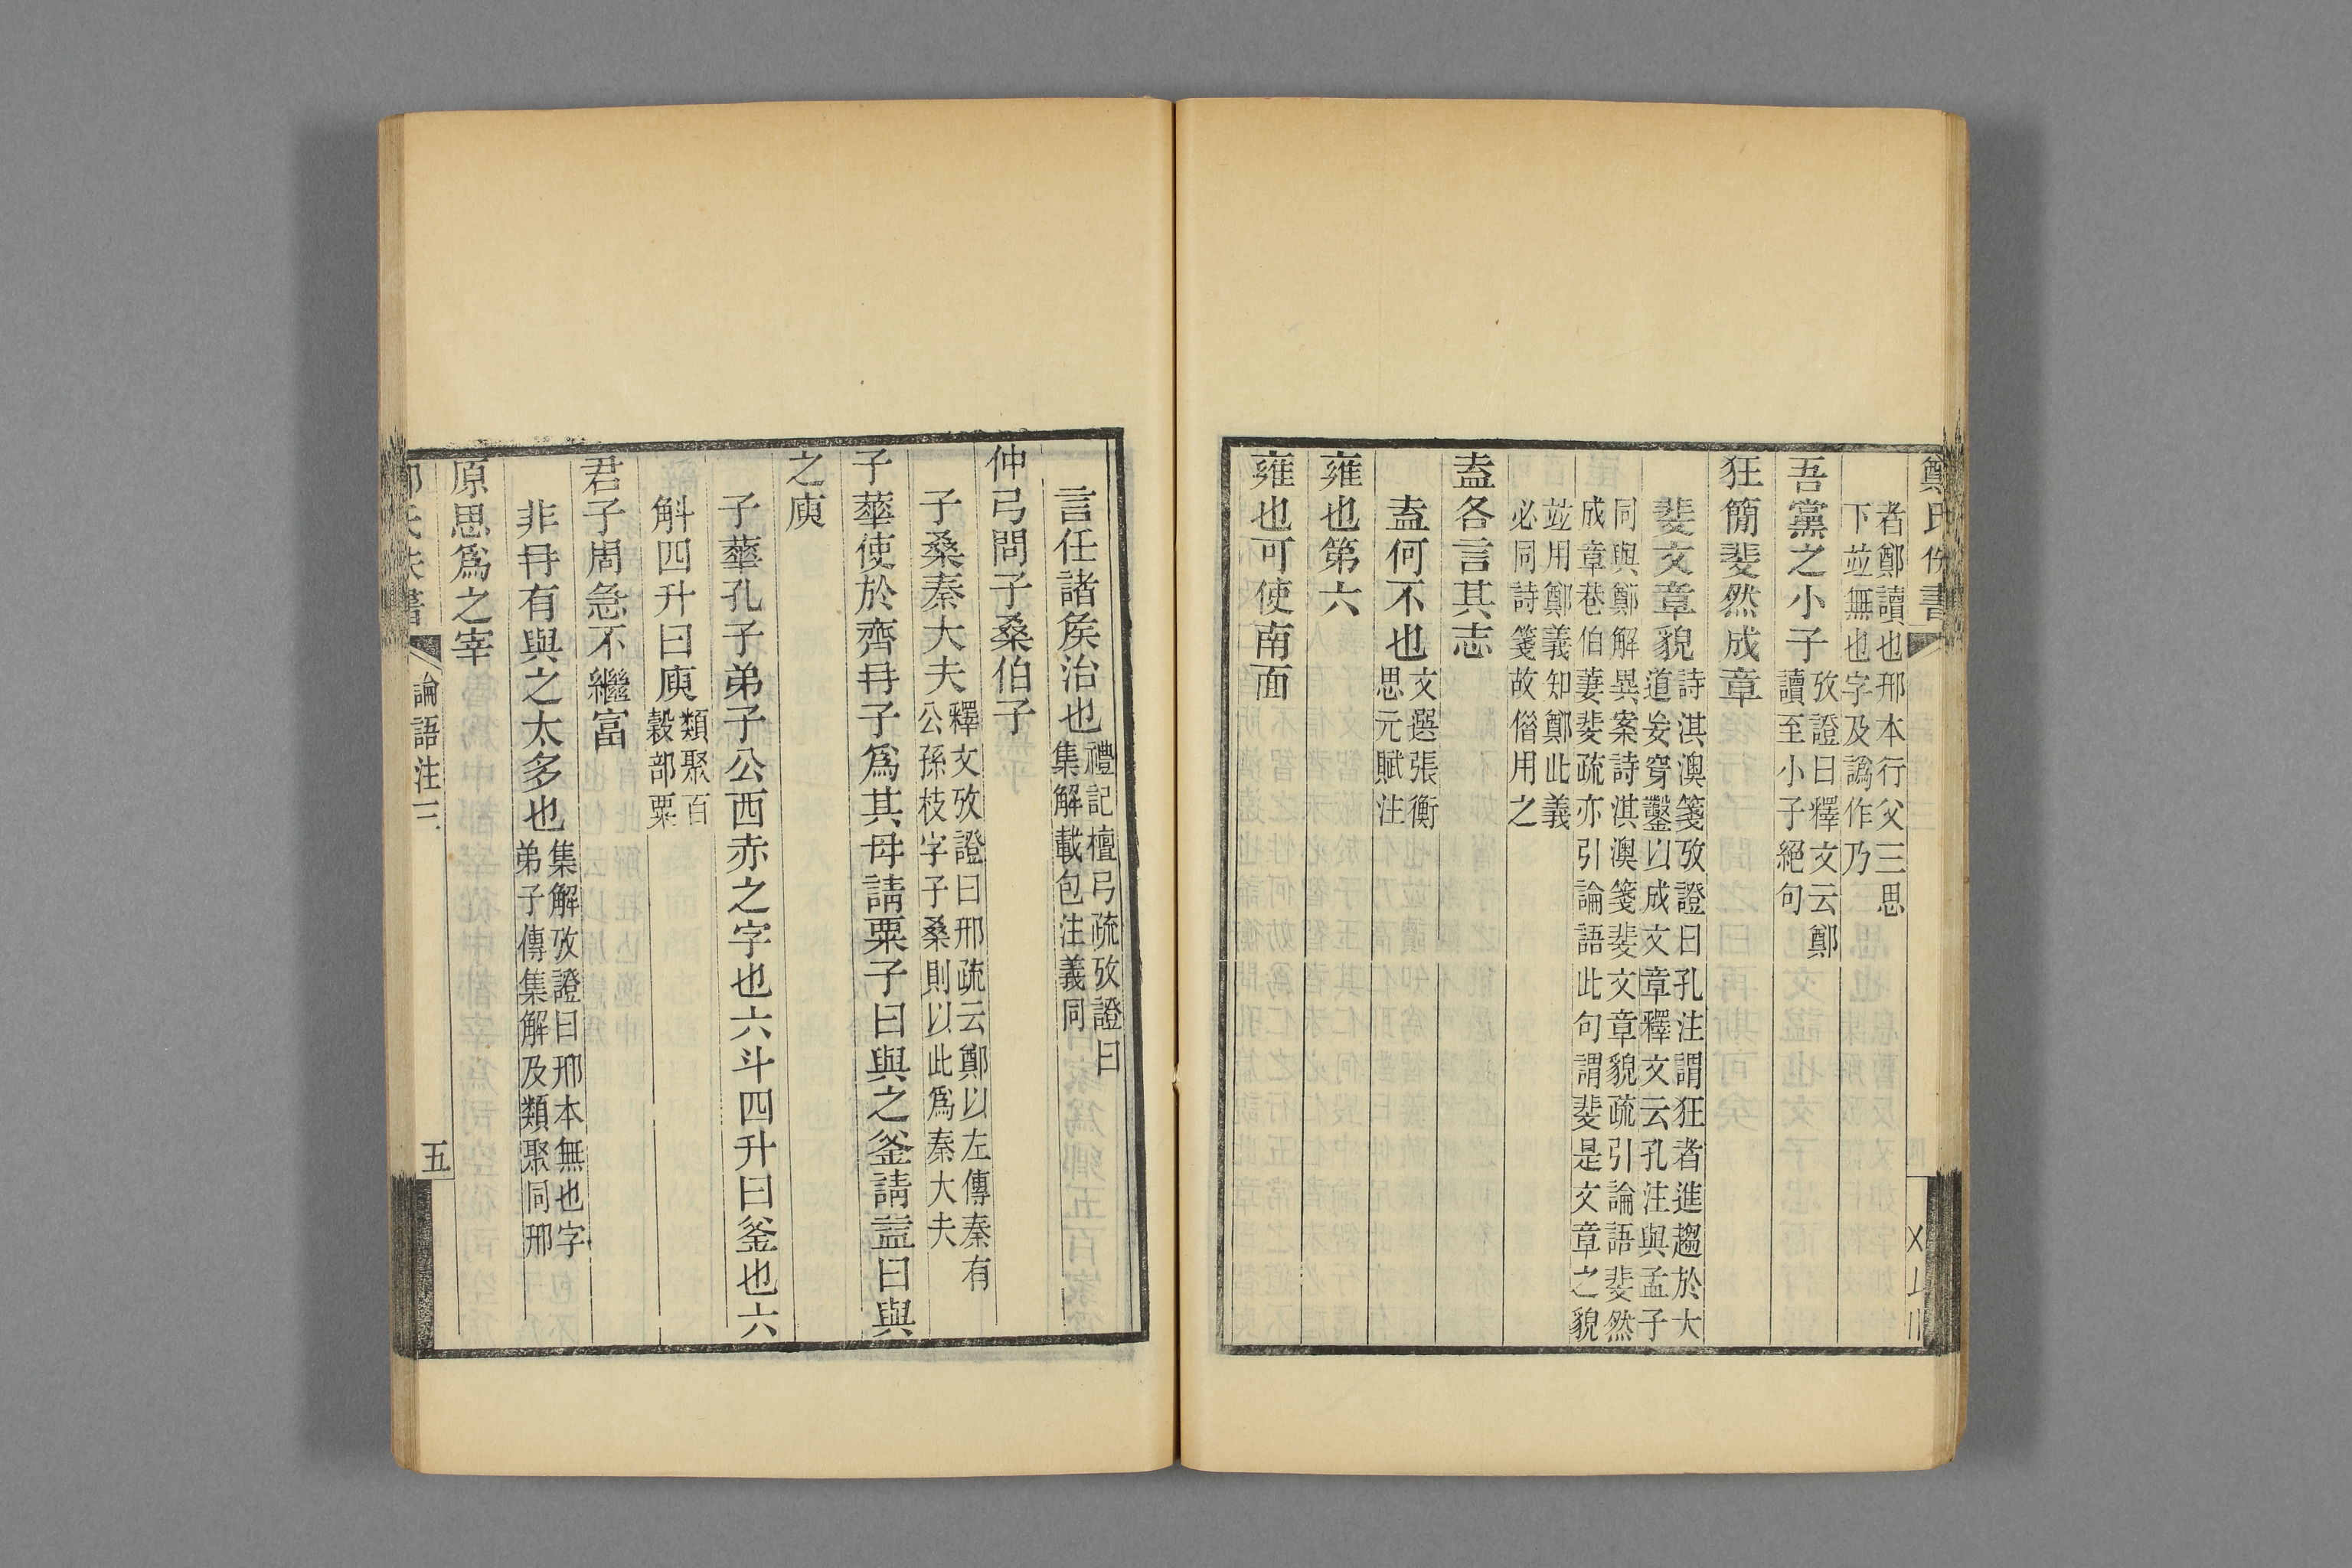 鄭氏佚書
者鄭讀也邢本行父三思
下並無也字及譌作乃
吾黨之小子
攷證曰釋文云鄭
讀至小子絕句
狂簡斐然成章
斐文章貌
詩淇澳箋攷證曰孔注謂狂者進趨於大
道妄穿鑿以成文章釋文云孔注與孟子
同與鄭解異案詩淇澳箋斐文章貌疏引論語斐然
成章巷伯萋斐疏亦引論語此句謂斐是文章之貌
並用鄭義知鄭此義
必同詩箋故僭用之
盍各言其志
盍何不也
文選張衡
思元賦注
雍也第六
雍也可使南面
言任諸矦治也
禮記檀弓疏攷證曰
集解載包注義同
仲弓問子桑伯子
子桑秦大夫
釋文攷證曰邢疏云鄭以左傳秦有
公孫枝字子桑則以此爲秦大夫
子華使於齊冄子爲其母請粟子曰與之釜請益曰與
之庾
子華孔子弟子公西赤之字也六斗四升曰釜也六
斛四升曰庾
類聚百
穀部粟
君子周急不繼富
非冄有與之太多也
集解攷證曰邢本無也字
弟子傳集解及類聚同邢
原思爲之宰
論語注三
五